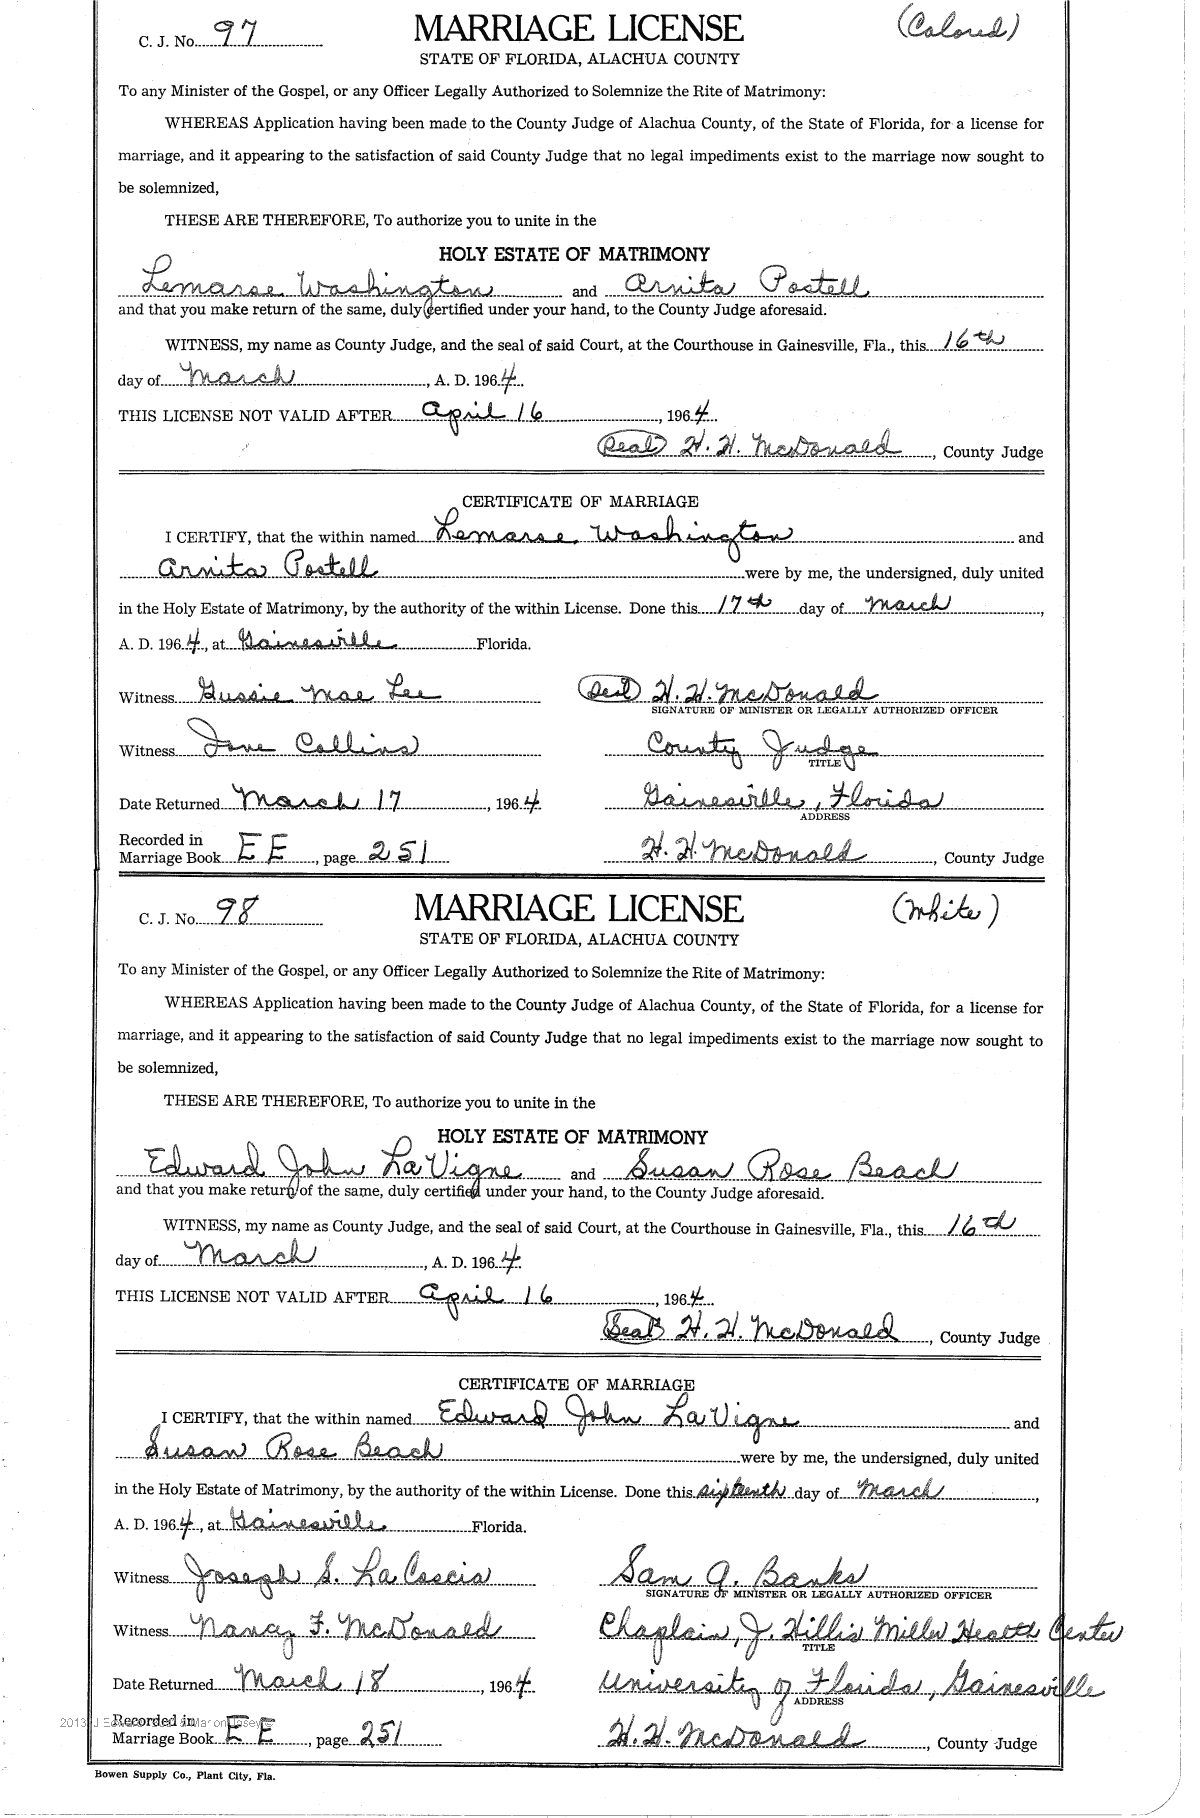 C. J. No. 97 MARRIAGE LICENSE (Colored)
STATE OF FLORIDA, ALACHUA COUNTY
To any Minister of the Gospel, or any Officer Legally Authorized to Solemnize the Rite of Matrimony:
WHEREAS Application having been made to the County Judge of Alachua County, of the State of Florida, for a license for
marriage, and it appearing to the satisfaction of said County Judge that no legal impediments exist to the marriage now sought to
be solemnized,
THESE ARE THEREFORE, To authorize you to unite in the
HOLY ESTATE OF MATRIMONY
Lemarse Washington and Arnita Postell
and that you make return of the same, duly certified under your hand, to the County Judge aforesaid.
WITNESS, my name as County Judge, and the seal of said Court, at the Courthouse in Gainesville, Fla., this 16th
day of March, A. D. 1964.
THIS LICENSE NOT VALID AFTER April 16, 1964.
(Seal) H. H. McDonald, County Judge
CERTIFICATE OF MARRIAGE
I CERTIFY, that the within named Lemarse Washington and
Arnita Postell were by me, the undersigned, duly united
in the Holy Estate of Matrimony, by the authority of the within License. Done this 17th day of March,
A. D. 1964, at Gainesville Florida.
Witness Gussie Mae Lee (Seal) H. H. McDonald
SIGNATURE OF MINISTER OR LEGALLY AUTHORIZED OFFICER
Witness Jane Collins County Judge
TITLE
Date Returned March 17, 1964. Gainesville, Florida
ADDRESS
Recorded in
Marriage Book EE, page 251 H. H. McDonald, County Judge
C. J. No. 98 MARRIAGE LICENSE (White)
STATE OF FLORIDA, ALACHUA COUNTY
To any Minister of the Gospel, or any Officer Legally Authorized to Solemnize the Rite of Matrimony:
WHEREAS Application having been made to the County Judge of Alachua County, of the State of Florida, for a license for
marriage, and it appearing to the satisfaction of said County Judge that no legal impediments exist to the marriage now sought to
be solemnized,
THESE ARE THEREFORE, To authorize you to unite in the
HOLY ESTATE OF MATRIMONY
Edward John LaVigne and Susan Rose Beach
and that you make return of the same, duly certified under your hand, to the County Judge aforesaid.
WITNESS, my name as County Judge, and the seal of said Court, at the Courthouse in Gainesville, Fla., this 16th
day of March, A. D. 1964.
THIS LICENSE NOT VALID AFTER April 16, 1964.
(Seal) H. H. McDonald, County Judge
CERTIFICATE OF MARRIAGE
I CERTIFY, that the within named Edward John LaVigne and
Susan Rose Beach were by me, the undersigned, duly united
in the Holy Estate of Matrimony, by the authority of the within License. Done this sixteenth day of March,
A. D. 1964, at Gainesville Florida.
Witness Joseph S. LaCascia Sam A. Banks
SIGNATURE OF MINISTER OR LEGALLY AUTHORIZED OFFICER
Witness Nancy F. McDonald Chaplain, J. Hillis Miller Health Center
TITLE
Date Returned March 18, 1964. University of Florida, Gainesville
ADDRESS
Recorded in
Marriage Book EE, page 251 H. H. McDonald, County Judge
Bowen Supply Co., Plant City, Fla.